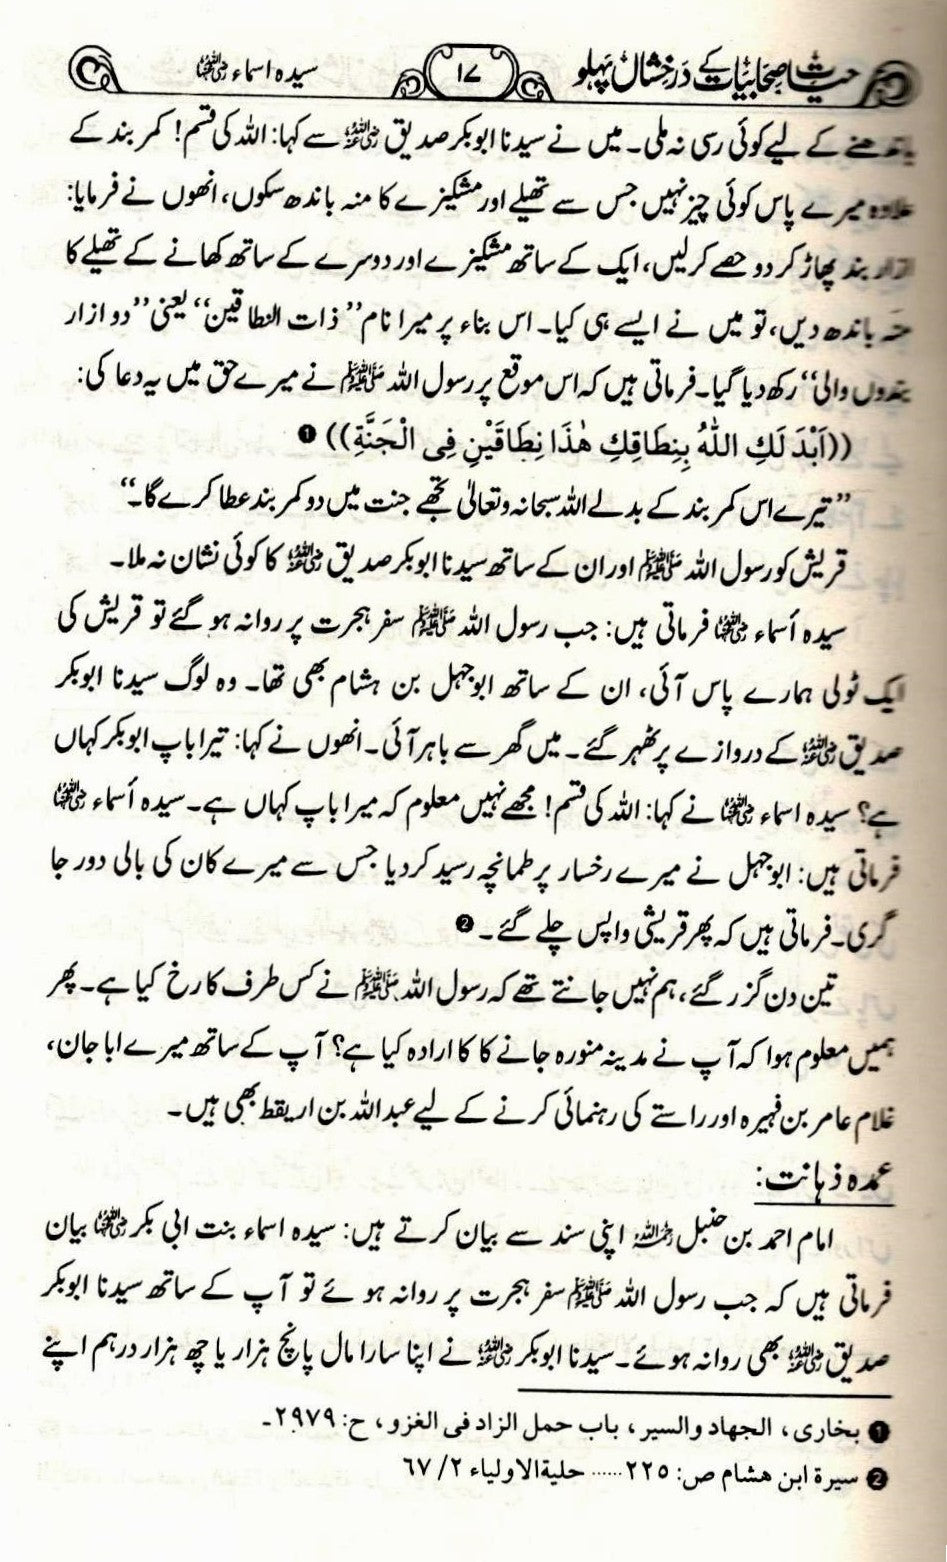 حیات صحابیات کے درخشاں پہلو ۱۷ سیدہ اسماء رضی اللہ عنہا
باندھنے کے لیے کوئی رسی نہ ملی۔ میں نے سیدنا ابوبکر صدیق رضی اللہ عنہ سے کہا: اللہ کی قسم! کمر بند کے
علاوہ میرے پاس کوئی چیز نہیں جس سے تھیلے اور مشکیزے کا منہ باندھ سکوں، انھوں نے فرمایا:
ازار بند پھاڑ کر دو حصے کر لیں، ایک کے ساتھ مشکیزے اور دوسرے کے ساتھ کھانے کے تھیلے کا
منہ باندھ دیں، تو میں نے ایسے ہی کیا۔ اس بناء پر میرا نام ”ذات النطاقین“ یعنی ”دو ازار
بندوں والی“ رکھ دیا گیا۔ فرماتی ہیں کہ اس موقع پر رسول اللہ ﷺ نے میرے حق میں یہ دعا کی:
((اَبْدَ لَكِ اللّٰهُ بِنِطَاقِكِ هٰذَا نِطَاقَيْنِ فِى الْجَنَّةِ)) ❶
”تیرے اس کمر بند کے بدلے اللہ سبحانہ وتعالیٰ تجھے جنت میں دو کمر بند عطا کرے گا۔“
قریش کو رسول اللہ ﷺ اور ان کے ساتھ سیدنا ابوبکر صدیق رضی اللہ عنہ کا کوئی نشان نہ ملا۔
سیدہ أسماء رضی اللہ عنہا فرماتی ہیں: جب رسول اللہ ﷺ سفر ہجرت پر روانہ ہو گئے تو قریش کی
ایک ٹولی ہمارے پاس آئی، ان کے ساتھ ابوجہل بن ہشام بھی تھا۔ وہ لوگ سیدنا ابوبکر
صدیق رضی اللہ عنہ کے دروازے پر ٹھہر گئے۔ میں گھر سے باہر آئی۔ انھوں نے کہا: تیرا باپ ابوبکر کہاں
ہے؟ سیدہ اسماء رضی اللہ عنہا نے کہا: اللہ کی قسم! مجھے نہیں معلوم کہ میرا باپ کہاں ہے۔ سیدہ أسماء رضی اللہ عنہا
فرماتی ہیں: ابوجہل نے میرے رخسار پر طمانچہ رسید کر دیا جس سے میرے کان کی بالی دور جا
گری۔ فرماتی ہیں کہ پھر قریشی واپس چلے گئے۔ ❷
تین دن گزر گئے، ہم نہیں جانتے تھے کہ رسول اللہ ﷺ نے کس طرف کا رخ کیا ہے۔ پھر
ہمیں معلوم ہوا کہ آپ نے مدینہ منورہ جانے کا کا ارادہ کیا ہے؟ آپ کے ساتھ میرے ابا جان،
غلام عامر بن فہیرہ اور راستے کی رہنمائی کرنے کے لیے عبداللہ بن اریقط بھی ہیں۔
عمدہ ذہانت:
امام احمد بن حنبل رحمہ اللہ اپنی سند سے بیان کرتے ہیں: سیدہ اسماء بنت ابی بکر رضی اللہ عنہا بیان
فرماتی ہیں کہ جب رسول اللہ ﷺ سفر ہجرت پر روانہ ہوئے تو آپ کے ساتھ سیدنا ابوبکر
صدیق رضی اللہ عنہ بھی روانہ ہوئے۔ سیدنا ابوبکر رضی اللہ عنہ نے اپنا سارا مال پانچ ہزار یا چھ ہزار درہم اپنے
❶ بخاری، الجهاد والسیر، باب حمل الزاد فی الغزو، ح: ۲۹۷۹۔
❷ سیرة ابن هشام ص: ۲۲۵ ...... حلیة الاولیاء ۲/ ۶۷